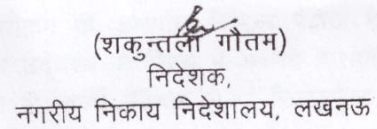 (शकुन्तला गौतम)
निदेशक,
नगरीय निकाय निदेशालय, लखनऊ